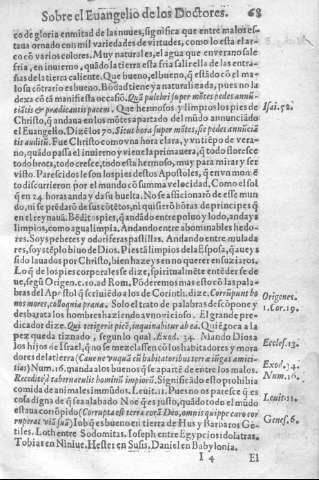 Sobre el Euangelio de los Doctores. 68
co de gloria en mitad de las nues, significa que entre males es-
taua ornado con mil variedades de virtudes, como lo està el ar-
co cõ varios colores. Muy natural es, el agua que en verano sale
fria, en inuierno, quãdo la tierra esta fria salir ella de las entra-
ñas de la tierra caliente. Que bueno, el bueno, q̃ està do cõ el ma-
lo su cõtrario es bueno. Bõdad tiene ya naturalizada, pues no la
dexa cõ tã manifiesta ocasiõ. Quã pulchri super mõtes pedes annũ-
tiãtis & prædicantis pacem. Que hermosos y limpios los pies de
Christo, q̃ andaua en los mõtes apartado del mũdo annunciãdo
el Euangelio. Dizẽ los 70. Sicut hora super mõtes, sic pedes annũciã
tis auditũ. Fue Christo como vna hora clara, y vn tiẽpo de vera-
no, quãdo passa el inuierno y viene la primauera, q̃ todo florece
todo brota, todo crece, todo esta hermoso, muy para mirar y ser
visto. Parecidos le son los pies destos Apostoles, q̃ en vn momẽ
to discurrieron por el mundo cõ summa velocidad. Como el sol
q̃ en 24 horas anda y da su buelta. No se aficionarõ de esse mun
do, ni se prẽdarõ de sus cõtẽtos, ni quisierõ hõras de principes q̃
en el rey nauã. Bẽditos pies, q̃ andãdo entre poluo y lodo, andays
limpios, como agua limpia. Andando entre abominables hedo-
res. Soys pebetes y odoriferas pastillas. Andando entre mulada
res, soys tẽplo biuo de Dios. Pies tã limpios dela Esposa, q̃ aueys
sido lauados por Christo, bien hazeys en no querer ensuziaros.
Lo q̃ de los pies corporales se dize, spiritualmẽte entẽderse de-
ue, segũ Origen. c. 10. ad Rom. Põderemos mas esto cõ las pala-
bras del Apostol q̃ scriuiẽdo a los de Corinth. dize. Corrũpunt bo
nos mores, colloquia praua. Solo el trato de palabras descõpone y
desbarata los hombres haziendo a vno vicioso. El grande pre-
dicador dize. Qui tetigerit picẽ, inquinabitur ab ea. Quiẽ toca a la
pez queda tiznado, segun lo qual Exod. 34. Niando Dios a
los hijos de Israel, q̃ no se mezclassen cõ los habitadores y mora
dores de la tierra (Caue ne vnquã cũ habitatoribus terræ iũgas amici-
tias) Num. 16. manda a los buenos q̃ se aparte de entre los malos.
Recedite à tabernaculis hominũ impiorũ. Significado esto prohibia
comida de animales immũdos. Leuit. 11. Pues no os parece q̃ es
cosa digna de q̃ sea alabado Noe q̃ es justo, quãdo todo el mũdo
estaua corrũpido (Corrupta est terra corã Deo, omnis quippe caro cor
ruperat viã suã) Iob q̃ es bueno en tierra de Hus y Barbaros Gẽ-
tiles. Loth entre Sodomitas. Ioseph entre Egypcios idolatras.
Tobias en Niniue, Hester en Susis, Daniel en Babylonia.
I 4 El
Isai. 52.
Origenes.
1. Cor. 19.
Eccles. 13.
Exod. 34.
Num. 16.
Leuit. 11.
Genes. 6.